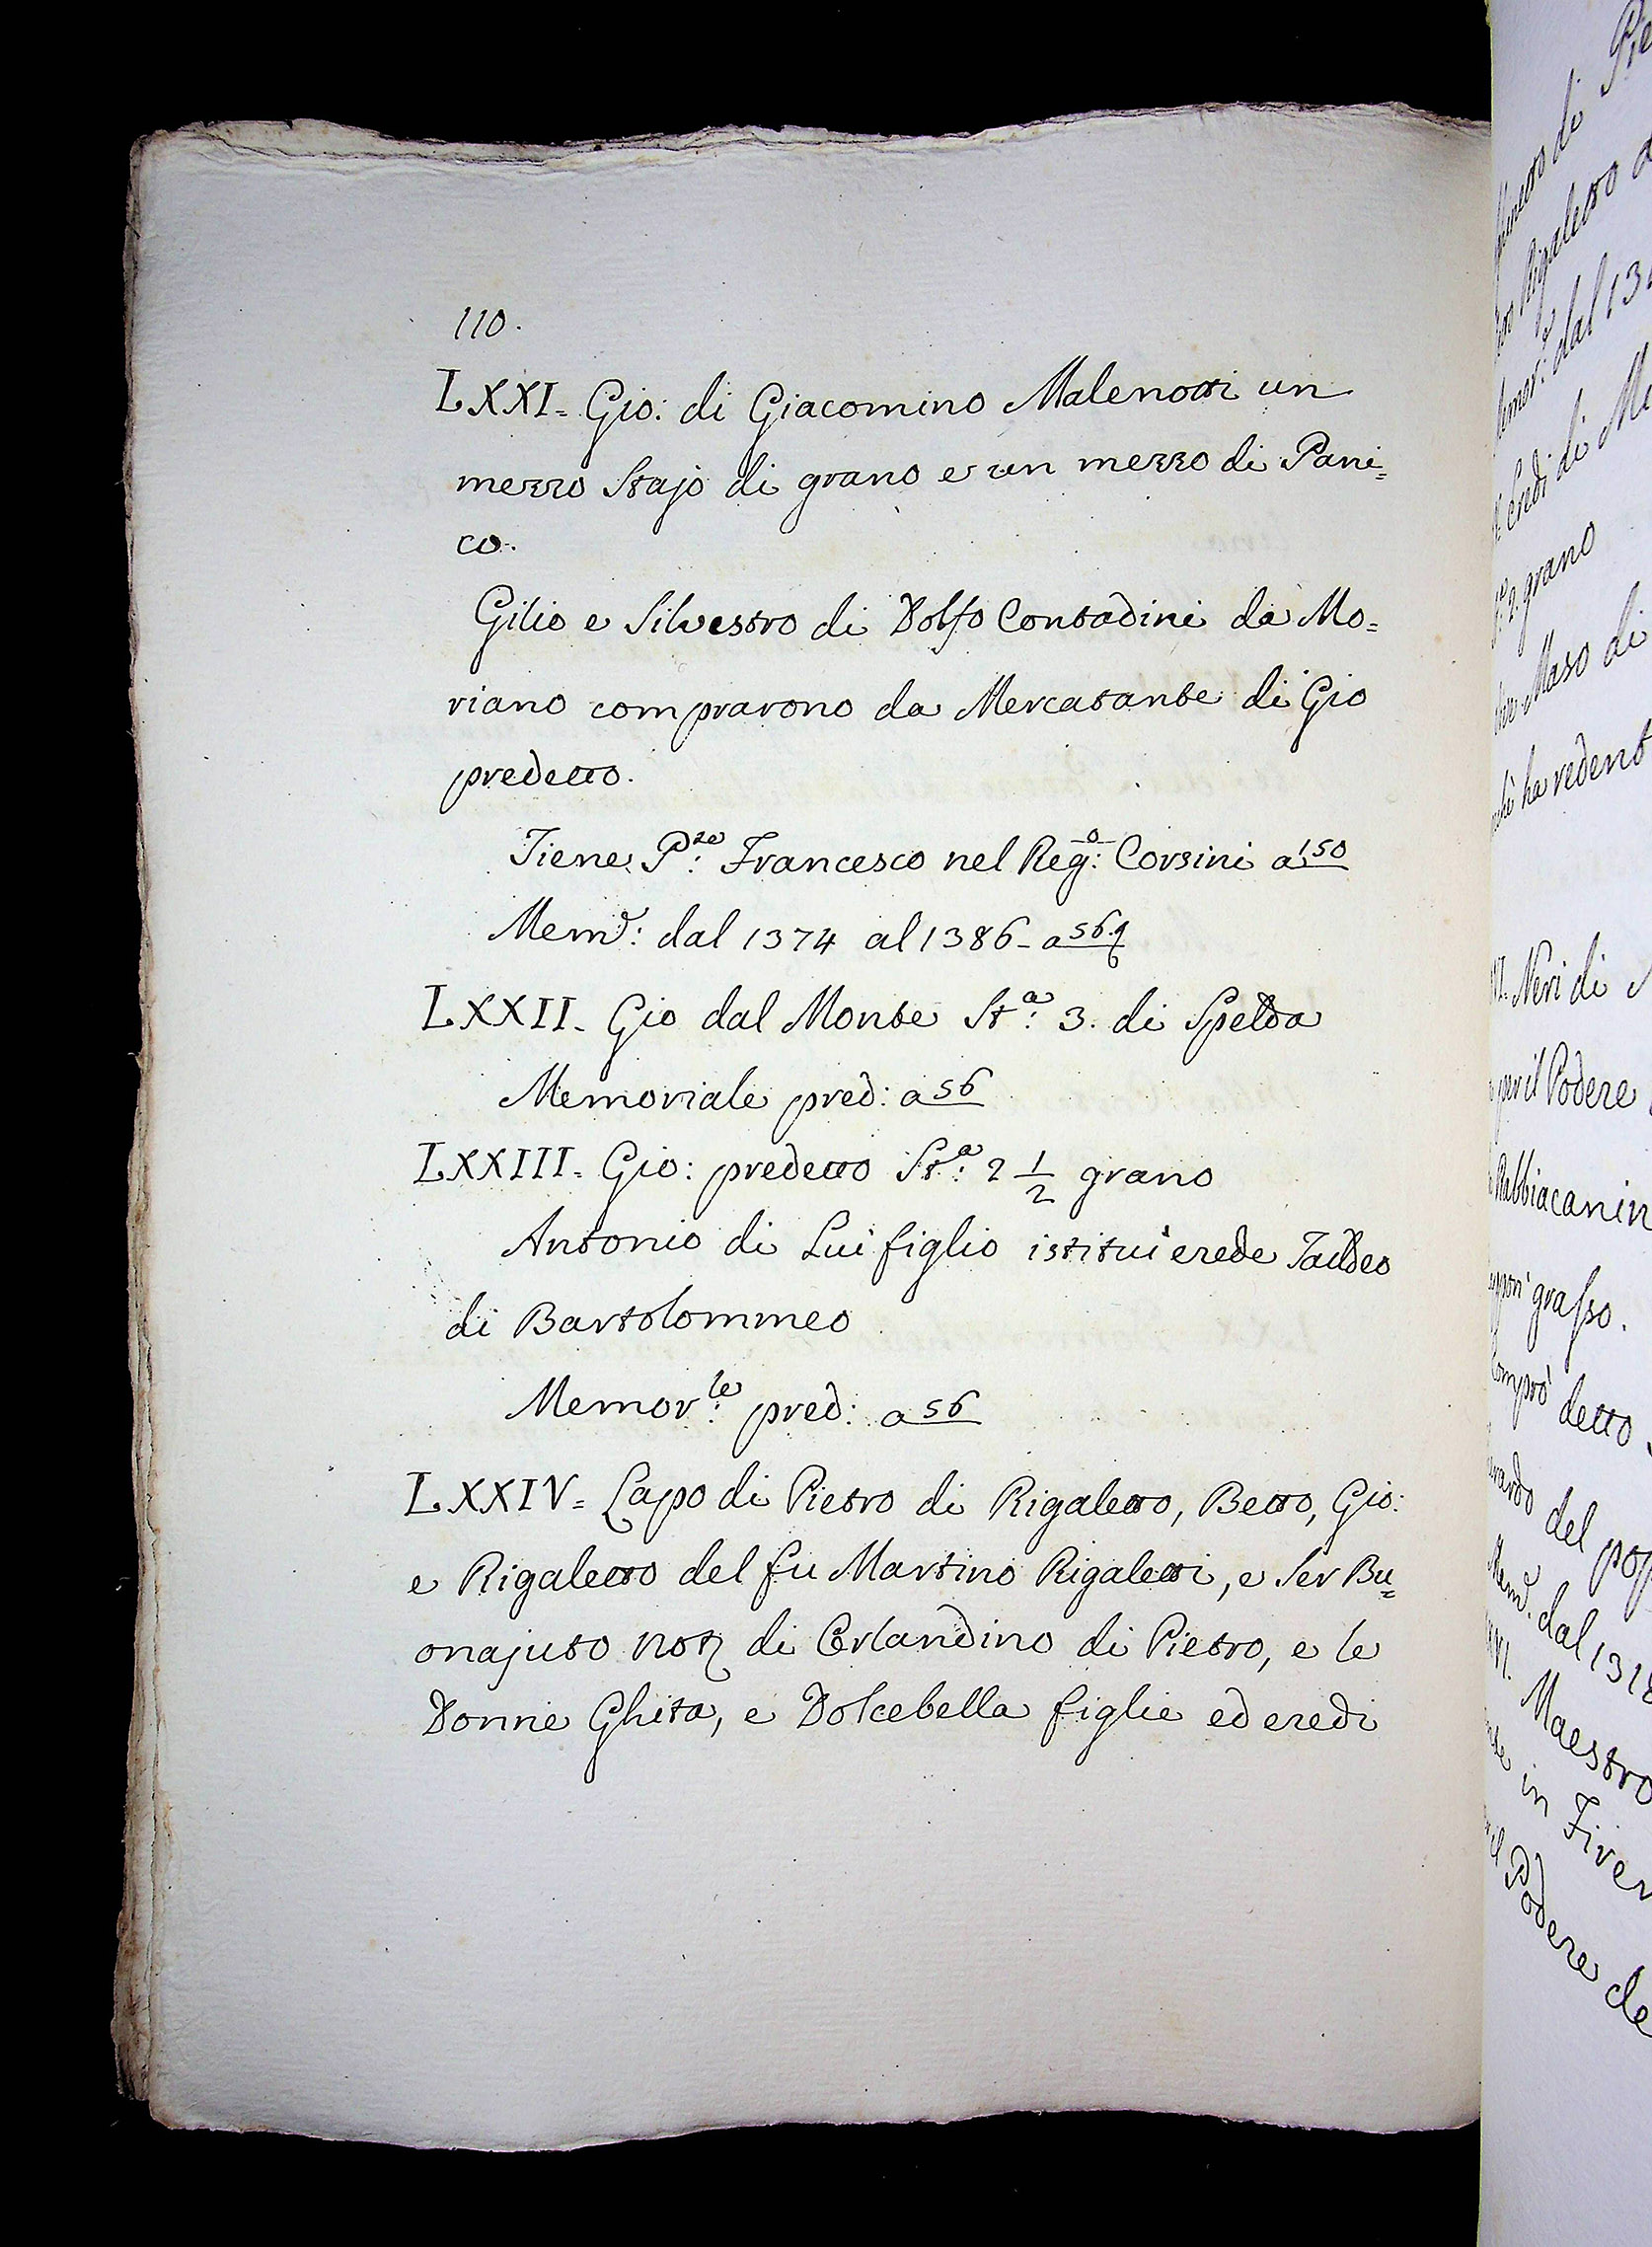 110.
LXXI= Gio: di Giacomino Malenotti un
mezzo Stajo di grano e un mezzo di Pani=
co.
Gilio e Silvestro di Dolfo Contadini da Mo=
riano comprarono da Mercatante di Gio
predetto.
Tiene P:re Francesco nel Reg:o Corsini a 150
Mem: dal 1374 al 1386- a 56
LXXII- Gio dal Monte St:a 3. di Spelda
Memoriale pred: a 56
LXXIII- Gio: predetto St:a 2 1/2 grano
Antonio di Lui figlio istitui erede Taddeo
di Bartolommeo
Memor:le pred: a 56
LXXIV= Lapo di Pietro di Rigaletto, Betto, Gio:
e Rigaletto del fu Martino Rigaletti, e Ser Bu=
onajuto di Orlandino di Pietro, e le
Donne Ghita, e Dolcebella figlie ed eredi
Rigaletto
dal 13
eredi di
2. grano
Maso di
ha
Neri di
per il Podere
grasso.
Comprò detto
del
Mem. dal 131
Maestro
in
Podere de